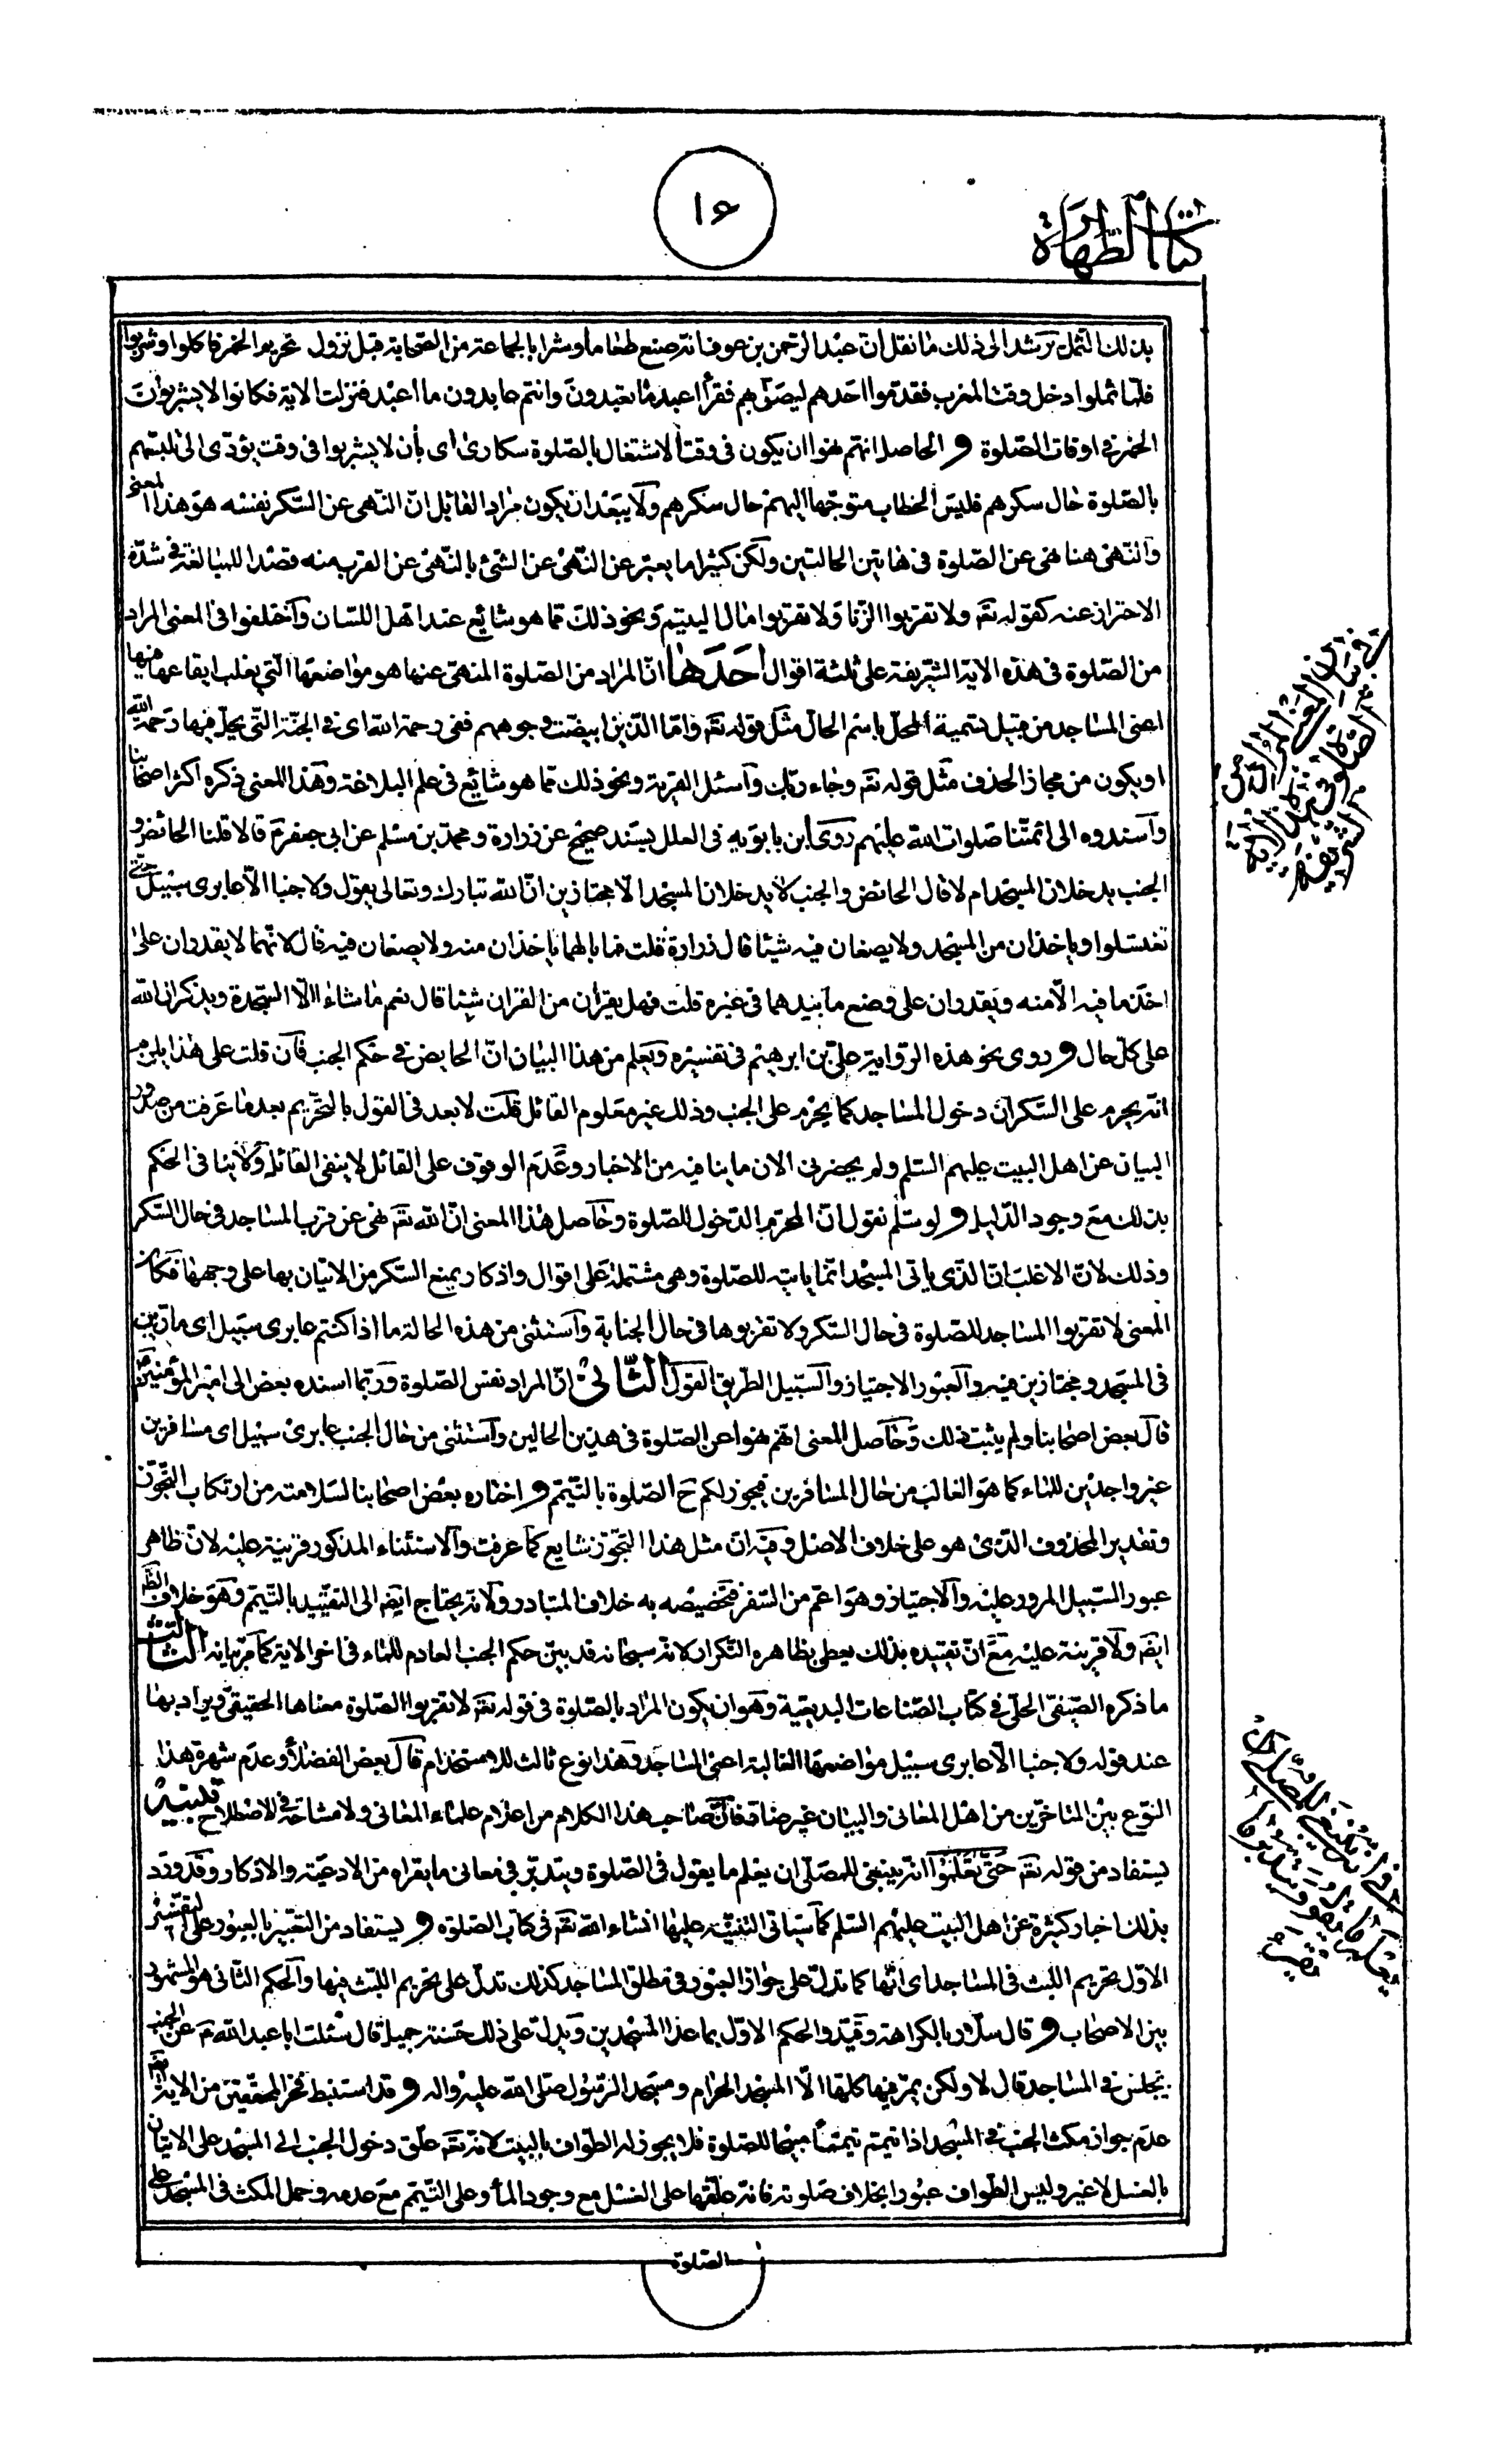 كتاب الطهارة
١٥
بذلك الثمل يرشد الى ذلك ما نقل ان عبد الرحمن بن عوف انه صنع طعاما وشرابا لجماعة من الصحابة قبل نزول تحريم الخمر فاكلوا وشربوا
فلما ثملوا دخل وقت المغرب فقدموا احدهم ليصلى بهم فقرأ اعبد ما تعبدون وانتم عابدون ما اعبد فنزلت الاية فكانوا لا يشربون
الخمر فى اوقات الصلوة و الحاصل انهم نهوا ان يكون فى وقت الاشتغال بالصلوة سكارى اى بأن لا يشربوا فى وقت يؤدى الى تلبسهم
بالصلوة حال سكرهم فليس الخطاب متوجها اليهم حال سكرهم ولا يبعد ان يكون مراد القائل ان النهى عن السكر نفسه هو هذا المعنى
والنهى هنا نهى عن الصلوة فى هاتين الحالتين ولكن كثيرا ما يعبر عن النهى عن الشئ بالنهى عن القرب منه قصدا للمبالغة فى شدة
الاحتراز عنه كقوله تع ولا تقربوا الزنا ولا تقربوا مال اليتيم ونحو ذلك مما هو شائع عند اهل اللسان واختلفوا فى المعنى المراد
من الصلوة فى هذه الاية الشريفة على ثلثة اقوال احدها ان المراد من الصلوة المنهى عنها هو مواضعها التى يغلب ايقاعها فيها
اعنى المساجد من قبيل تسمية المحل باسم الحال مثل قوله تع واما الذين ابيضت وجوههم ففى رحمة الله اى فى الجنة التى يحل فيها رحمة الله
او يكون من مجاز الحذف مثل قوله تع وجاء ربك واسئل القرية ونحو ذلك مما هو شائع فى علم البلاغة وهذا المعنى ذكره اكثر اصحابنا
واسندوه الى ائمتنا صلوات الله عليهم روى ابن بابويه فى العلل بسند صحيح عن زرارة ومحمد بن مسلم عن ابى جعفر ع قالا قلنا الحائض و
الجنب يدخلان المسجد ام لا قال الحائض والجنب لا يدخلان المسجد الا مجتازين ان الله تبارك وتعالى يقول ولا جنبا الا عابرى سبيل حتى
تغتسلوا وياخذان من المسجد ولا يضعان فيه شيئا قال زرارة قلت فما بالهما ياخذان منه ولا يضعان فيه قال لانهما لا يقدران على
اخذ ما فيه الا منه ويقدران على وضع ما بيدهما فى غيره قلت فهل يقرأن من القران شيئا قال نعم ما شاءا الا السجدة ويذكران الله
على كل حال و روى نحو هذه الرواية على بن ابرهيم فى تفسيره ويعلم من هذا البيان ان الحايض فى حكم الجنب فان قلت على هذا يلزم
انه يحرم على السكران دخول المساجد كما يحرم على الجنب وذلك غير معلوم القائل قلت لا بعد فى القول بالتحريم بعد ما عرفت من صدور
البيان عن اهل البيت عليهم السلم ولم يحضرنى الان ما ينافيه من الاخبار وعدم الوقوف على القائل لا ينفى القائل ولا ينافى الحكم
بذلك مع وجود الدليل و لو سلم نقول ان المحرم الدخول للصلوة وحاصل هذا المعنى ان الله تع نهى عن قرب المساجد فى حال السكر
وذلك لان الاغلب ان الذى ياتى المسجد انما ياتيه للصلوة وهى مشتملة على اقوال واذكار يمنع السكر من الاتيان بها على وجهها فكان
المعنى لا تقربوا المساجد للصلوة فى حال السكر ولا تقربوها فى حال الجنابة واستثنى من هذه الحالة ما اذا كنتم عابرى سبيل اى مارين
فى المسجد ومجتازين فيه والعبور الاجتياز والسبيل الطريق القول الثانى ان المراد نفس الصلوة وربما اسنده بعض الى امير المؤمنين ع
قال بعض اصحابنا ولم يثبت ذلك وحاصل المعنى انهم نهوا عن الصلوة فى هذين الحالين واستثنى من حال الجنب عابرى سبيل اى مسافرين
غير واجدين للماء كما هو الغالب من حال المسافرين فيجوز لكم ح الصلوة بالتيمم و اختاره بعض اصحابنا لسلامته من ارتكاب التجوز
وتقدير المحذوف الذى هو على خلاف الاصل وفيه ان مثل هذا التجوز شايع كما عرفت والاستثناء المذكور قرينة عليه لان ظاهر
عبور السبيل المرور عليه والاجتياز وهو اعم من السفر فتخصيصه به خلاف المتبادر ولانه يحتاج ايض الى التقييد بالتيمم وهو خلاف الظ
ايض ولا قرينة عليه مع ان تقييده بذلك يعطى بظاهره التكرار لانه سبحانه قد بين حكم الجنب العادم للماء فى اخر الاية كما مر بيانه الثالث
ما ذكره الصفى الحلى فى كتاب الصناعات البديعية وهو ان يكون المراد بالصلوة فى قوله تع لا تقربوا الصلوة معناها الحقيقى ويراد بها
عند قوله ولا جنبا الا عابرى سبيل مواضعها الغالبة اعنى المساجد وهذا نوع ثالث للاستخدام قال بعض الفضلاء وعدم شهرة هذا
النوع بين المتاخرين من اهل المعانى والبيان غير ضائر فان صاحب هذا الكلام من اعلام علماء المعانى ولا مشاحة فى الاصطلاح تنبيه
يستفاد من قوله تع حتى تعلموا انه ينبغى للمصلى ان يعلم ما يقول فى الصلوة ويتدبر فى معانى ما يقراه من الادعية والاذكار وقد ورد
بذلك اخبار كثيرة عن اهل البيت عليهم السلم كما سياتى التنبيه عليها انشاء الله تع فى كتاب الصلوة و يستفاد من التعبير بالعبور على التفسير
الاول تحريم اللبث فى المساجد اى انها كما تدل على جواز العبور فى مطلق المساجد كذلك تدل على تحريم اللبث فيها والحكم الثانى هو المشهور
بين الاصحاب و قال سلار بالكراهة وقيدوا الحكم الاول بما عدا المسجدين ويدل على ذلك حسنة جميل قال سئلت ابا عبد الله ع عن الجنب
يجلس فى المساجد قال لا ولكن يمر فيها كلها الا المسجد الحرام ومسجد الرسول صلى الله عليه واله و قد استنبط فخر المحققين من الاية
عدم جواز مكث الجنب فى المسجد اذا تيمم تيمما مبيحا للصلوة فلا يجوز له الطواف بالبيت لانه تع علق دخول الجنب الى المسجد على الاتيان
بالغسل لا غير وليس الطواف عبورا بخلاف صلوته فانه علقها على الغسل مع وجود الماء وعلى التيمم مع عدمه وحمل المكث فى المسجد على
الصلوة
فى بيان المعنى المراد من
الصلوة فى هذه الاية
الشريفة
فى انه ينبغى للمصلى ان
يعلم ما يقول ويتدبر ما